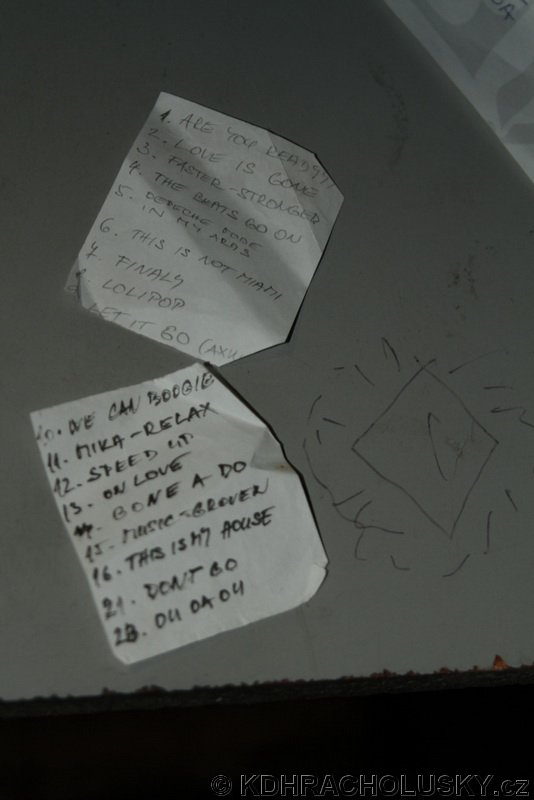 1. ARE YOU READY!!!
2. LOVE IS GONE
3. FASTER-STRONGER
4. THE BEATS GO ON
5. DEPECHE MODE
IN MY ARBS
6. THIS IS NOT MIAMI
7. FINALY
8. LOLIPOP
LET IT GO (AXW
10. WE CAN BOOGIE
11. MIKA-RELAX
12. SPEED UP
13. ON LOVE
14. GONE A DO
15. MUSIC-
16. THIS IS MY HOUSE
21. DONT GO
23. OU OA OU
© KDHRACHOLUSKY.cz